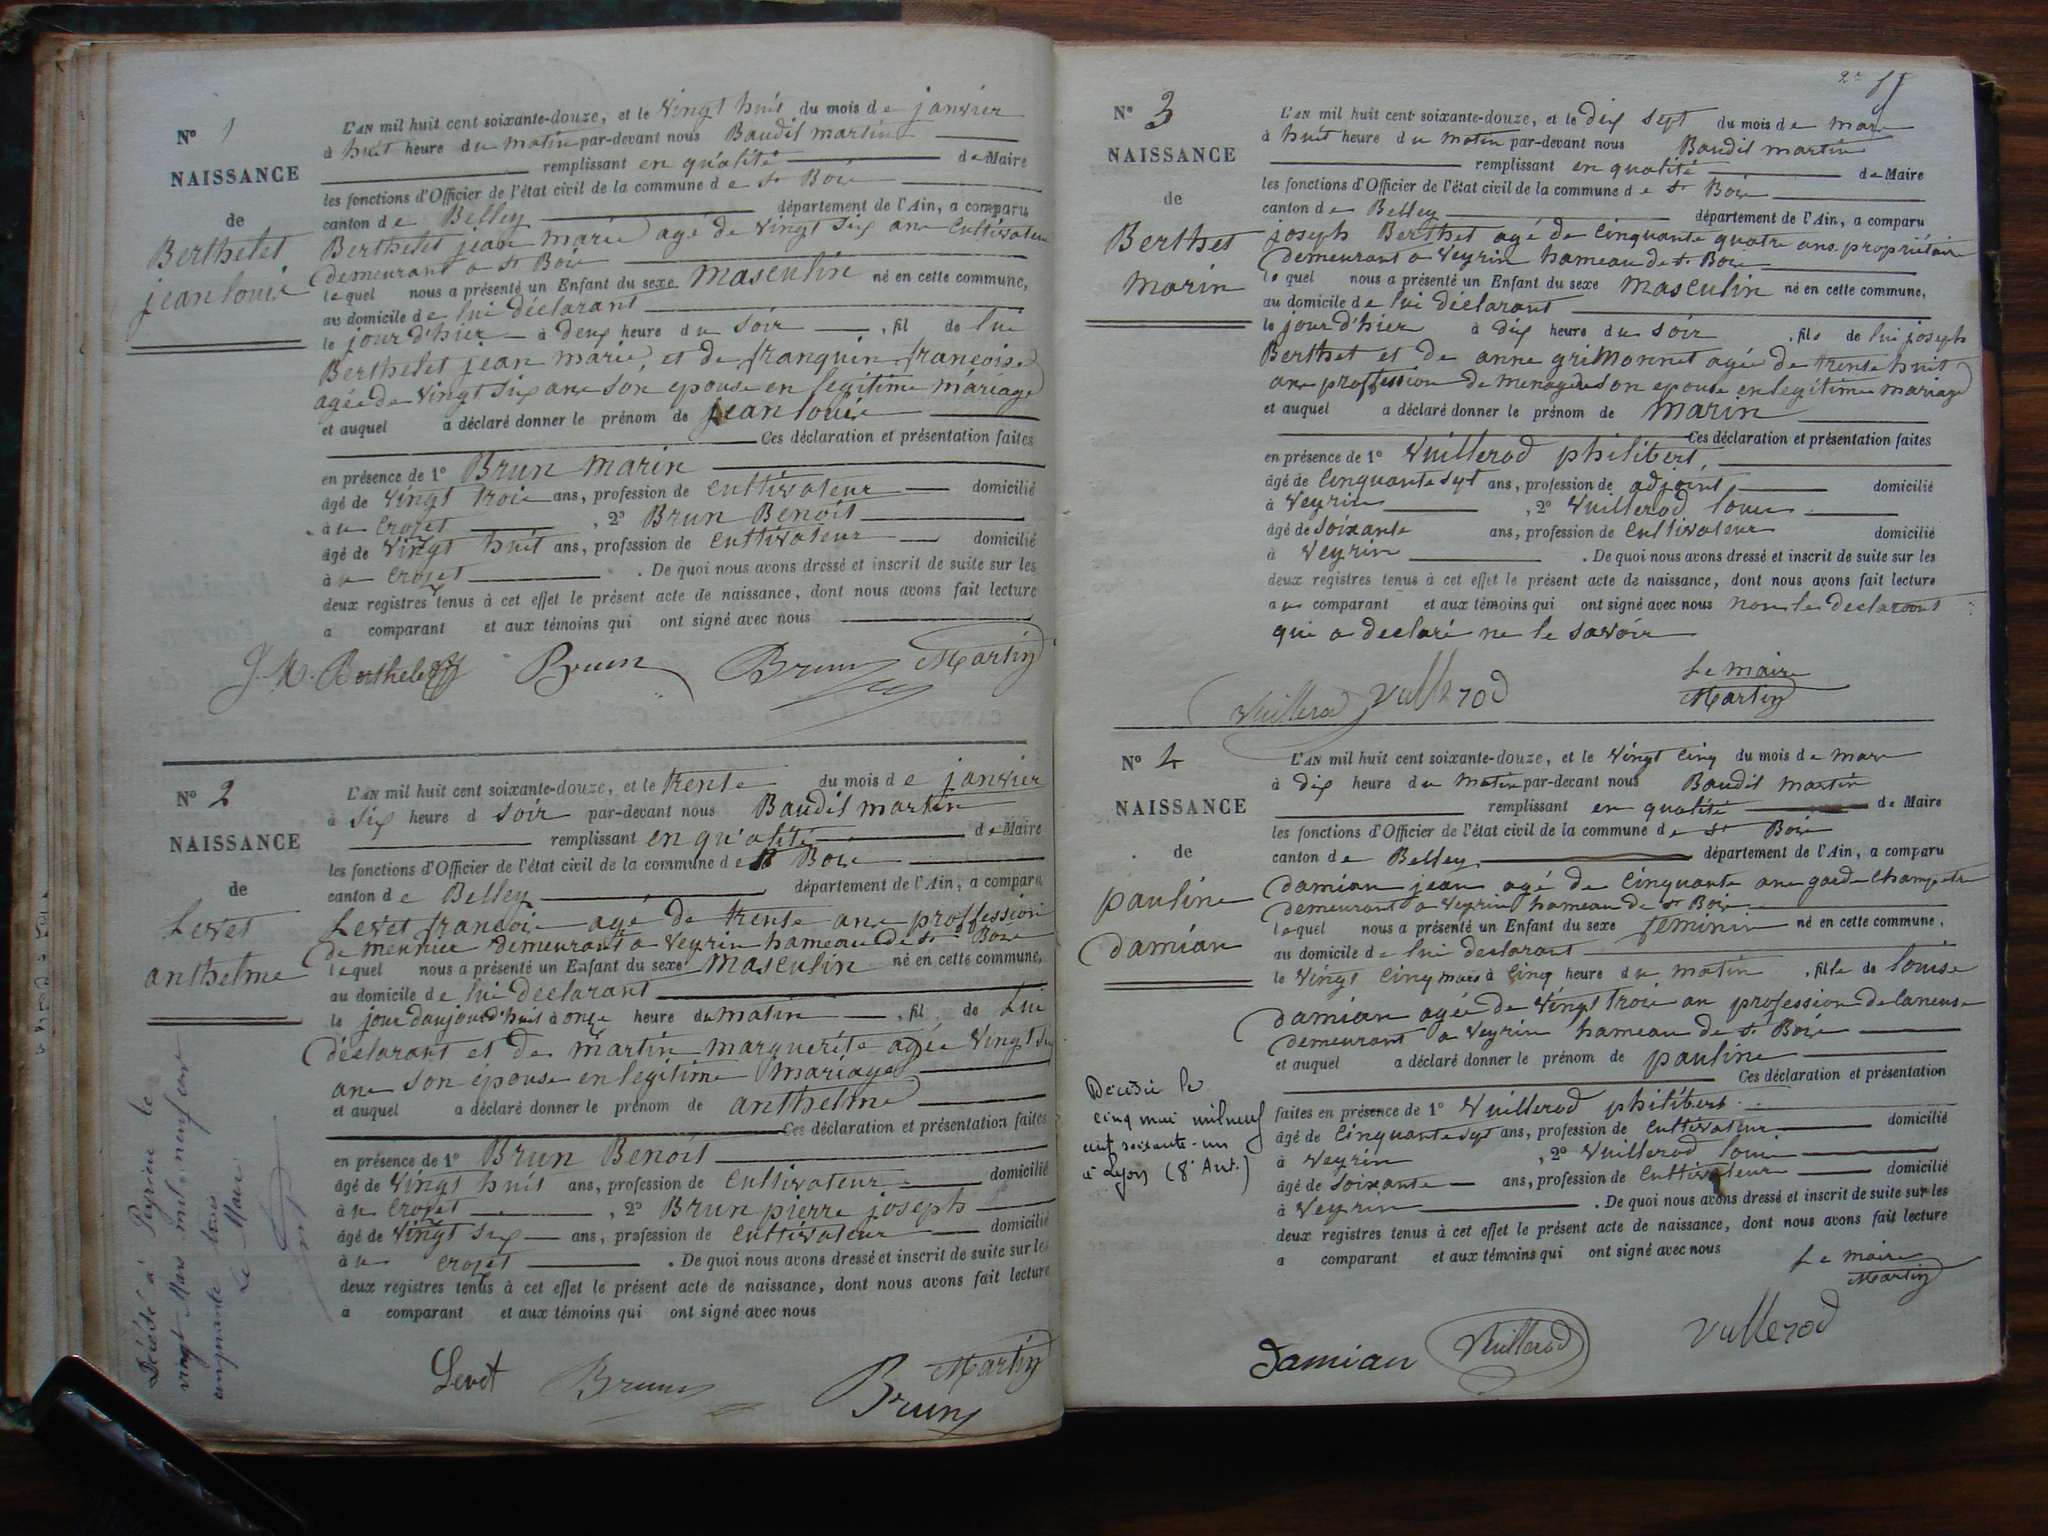 N° 1
NAISSANCE
de
Berthelet
jean louis
L'AN mil huit cent soixante-douze, et le vingt huit du mois de janvier
à huit heure du matin par-devant nous Baudit martin
remplissant en qualité de Maire
les fonctions d'Officier de l'état civil de la commune de St Bois
canton de Belley département de l'Ain, a comparu
Berthelet jean marie agé de vingt six ans Cultivateur
demeurant a St Bois
lequel nous a présenté un Enfant du sexe masculin né en cette commune,
au domicile de lui déclarant
le jour d'hier à deux heure du soir, fil de lui
Berthelet jean marie et de franquin françoise
agée de vingt six ans son epouse en legitime mariage
et auquel a déclaré donner le prénom de jean louis
Ces déclaration et présentation faites
en présence de 1° Brun marin
âgé de vingt trois ans, profession de cultivateur domicilié
à u crozet, 2° Brun Benoit
âgé de vingt huit ans, profession de cultivateur domicilié
à u crozet. De quoi nous avons dressé et inscrit de suite sur les
deux registres tenus à cet effet le présent acte de naissance, dont nous avons fait lecture
a comparant et aux témoins qui ont signé avec nous
J. M. Berthelet Brun Brun Martin
N° 2
NAISSANCE
de
Levet
anthelme
L'AN mil huit cent soixante-douze, et le trente du mois de janvier
à six heure d soir par-devant nous Baudit martin
remplissant en qu'alité de Maire
les fonctions d'Officier de l'état civil de la commune de St Bois
canton de Belley département de l'Ain, a comparu
Levet françois agé de trente ans proffession
de demeurant a veyrin hameau de St Bois
lequel nous a présenté un Enfant du sexe masculin né en cette commune,
au domicile de lui declarant
le jour daujourd'huit à onze heure du matin, fil de lui
déclarant et de martin marguerite agée vingt six
ans son épouse en legitime mariage
et auquel a déclaré donner le prénom de anthelme
Ces déclaration et présentation faites
en présence de 1° Brun Benoit
âgé de vingt huit ans, profession de cultivateur domicilié
à u crozet, 2° Brun pierre joseph
âgé de vingt six ans, profession de cultivateur domicilié
à u crozet. De quoi nous avons dressé et inscrit de suite sur les
deux registres tenus à cet effet le présent acte de naissance, dont nous avons fait lecture
a comparant et aux témoins qui ont signé avec nous
Levet Brun Brun Martin
Décédé à Peyrieu le
vingt Mars mil neuf cent
cinquante trois
Le Maire
N° 3
NAISSANCE
de
Berthet
marin
L'AN mil huit cent soixante-douze, et le dix sept du mois de mars
à huit heure du matin par-devant nous Baudit martin
remplissant en qualité de Maire
les fonctions d'Officier de l'état civil de la commune de St Bois
canton de Belley département de l'Ain, a comparu
joseph Berthet agé de cinquante quatre ans propriétaire
demeurant a veyrin hameau de St Bois
lequel nous a présenté un Enfant du sexe masculin né en cette commune,
au domicile de lui déclarant
le jour d'hier à dix heure du soir, fils de lui joseph
Berthet et de anne grimonnet agée de trente huit
ans proffession de menagere son epouse en legitime mariage
et auquel a déclaré donner le prénom de marin
Ces déclaration et présentation faites
en présence de 1° Vuillerod philibert,
âgé de cinquante sept ans, profession de adjoint domicilié
à veyrin, 2° Vuillerod louis
âgé de soixante ans, profession de cultivateur domicilié
à veyrin. De quoi nous avons dressé et inscrit de suite sur les
deux registres tenus à cet effet le présent acte de naissance, dont nous avons fait lecture
au comparant et aux témoins qui ont signé avec nous non le declarant
qui a declaré ne le savoir
Le maire
Vuillerod Vullerod Martin
N° 4
NAISSANCE
de
pauline
damian
L'AN mil huit cent soixante-douze, et le vingt cinq du mois de mars
à dix heure du matin par-devant nous Baudit martin
remplissant en qualité de Maire
les fonctions d'Officier de l'état civil de la commune de St Bois
canton de Belley département de l'Ain, a comparu
damian jean agé de cinquante ans garde champetre
demeurant a veyrin hameau de St Bois
lequel nous a présenté un Enfant du sexe feminin né en cette commune,
au domicile de lui declarant
le vingt cinq mars à cinq heure du matin, fille de louise
damian agée de vingt trois an profession de
demeurant a veyrin hameau de St Bois
et auquel a déclaré donner le prénom de pauline
Ces déclaration et présentation
faites en présence de 1° Vuillerod philibert
âgé de cinquante sept ans, profession de cultivateur domicilié
à veyrin, 2° Vuillerod louis
âgé de soixante ans, profession de cultivateur domicilié
à veyrin. De quoi nous avons dressé et inscrit de suite sur les
deux registres tenus à cet effet le présent acte de naissance, dont nous avons fait lecture
a comparant et aux témoins qui ont signé avec nous
Le maire
Martin
Damian Vuillerod Vullerod
Décédée le
cinq mai mil neuf
cent soixante-un
à Lyon (8e Arr.)